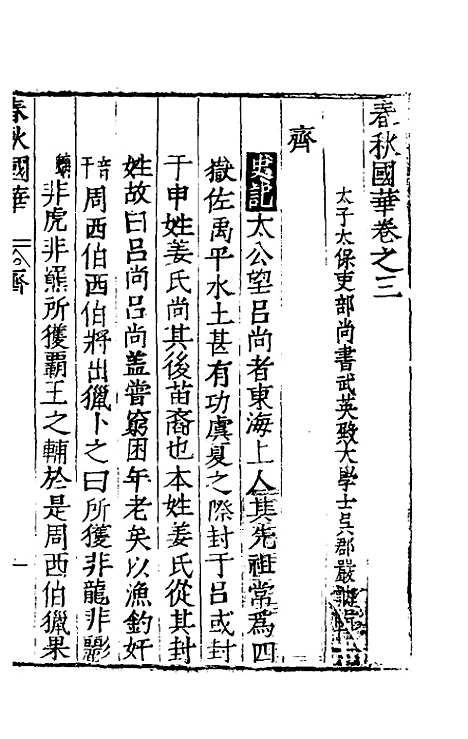 春秋國華卷之三
太子太保吏部尚書武英殿大學士吳郡嚴訥
齊
史記太公望呂尚者東海上人其先祖常爲四
嶽佐禹平水土甚有功虞夏之際封于呂或封
于申姓姜氏尚其後苗裔也本姓姜氏從其封
姓故曰呂尚呂尚盖嘗窮困年老矣以漁釣奸
音干周西伯西伯將出獵卜之曰所獲非龍非彲
螭非虎非羆所獲霸王之輔於是周西伯獵果
春秋國華 齊 一